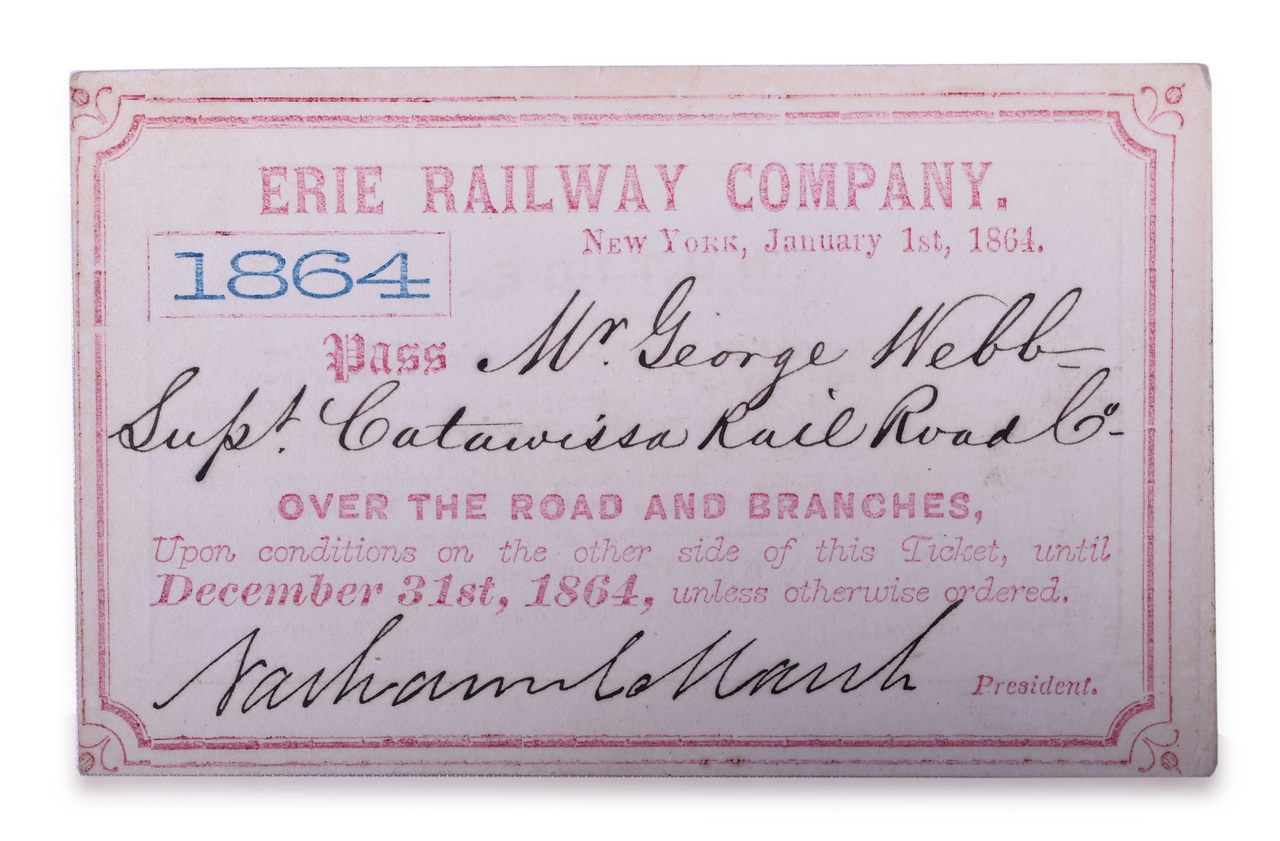 ERIE RAILWAY COMPANY.
New York, January 1st, 1864.
1864
Pass Mr. George Webb
Supt. Catawissa Rail Road Co.
OVER THE ROAD AND BRANCHES,
Upon conditions on the other side of this Ticket, until
December 31st, 1864, unless otherwise ordered.
Nathaniel Marsh President.